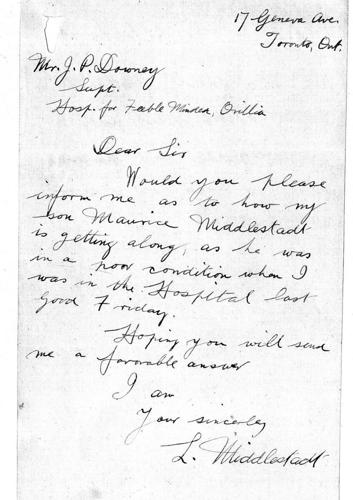 17 Geneva Ave.
Toronto, Ont.
Mr. J. P. Downey
Supt.
Hosp. for Feeble Minded, Orillia
Dear Sir
Would you please
inform me as to how my
son Maurice Middlestadt
is getting along, as he was
in a poor condition when I
was in the Hospital last
good Friday.
Hoping you will send
me a favorable answer
I am
Your sincerley
L. Middlestadt